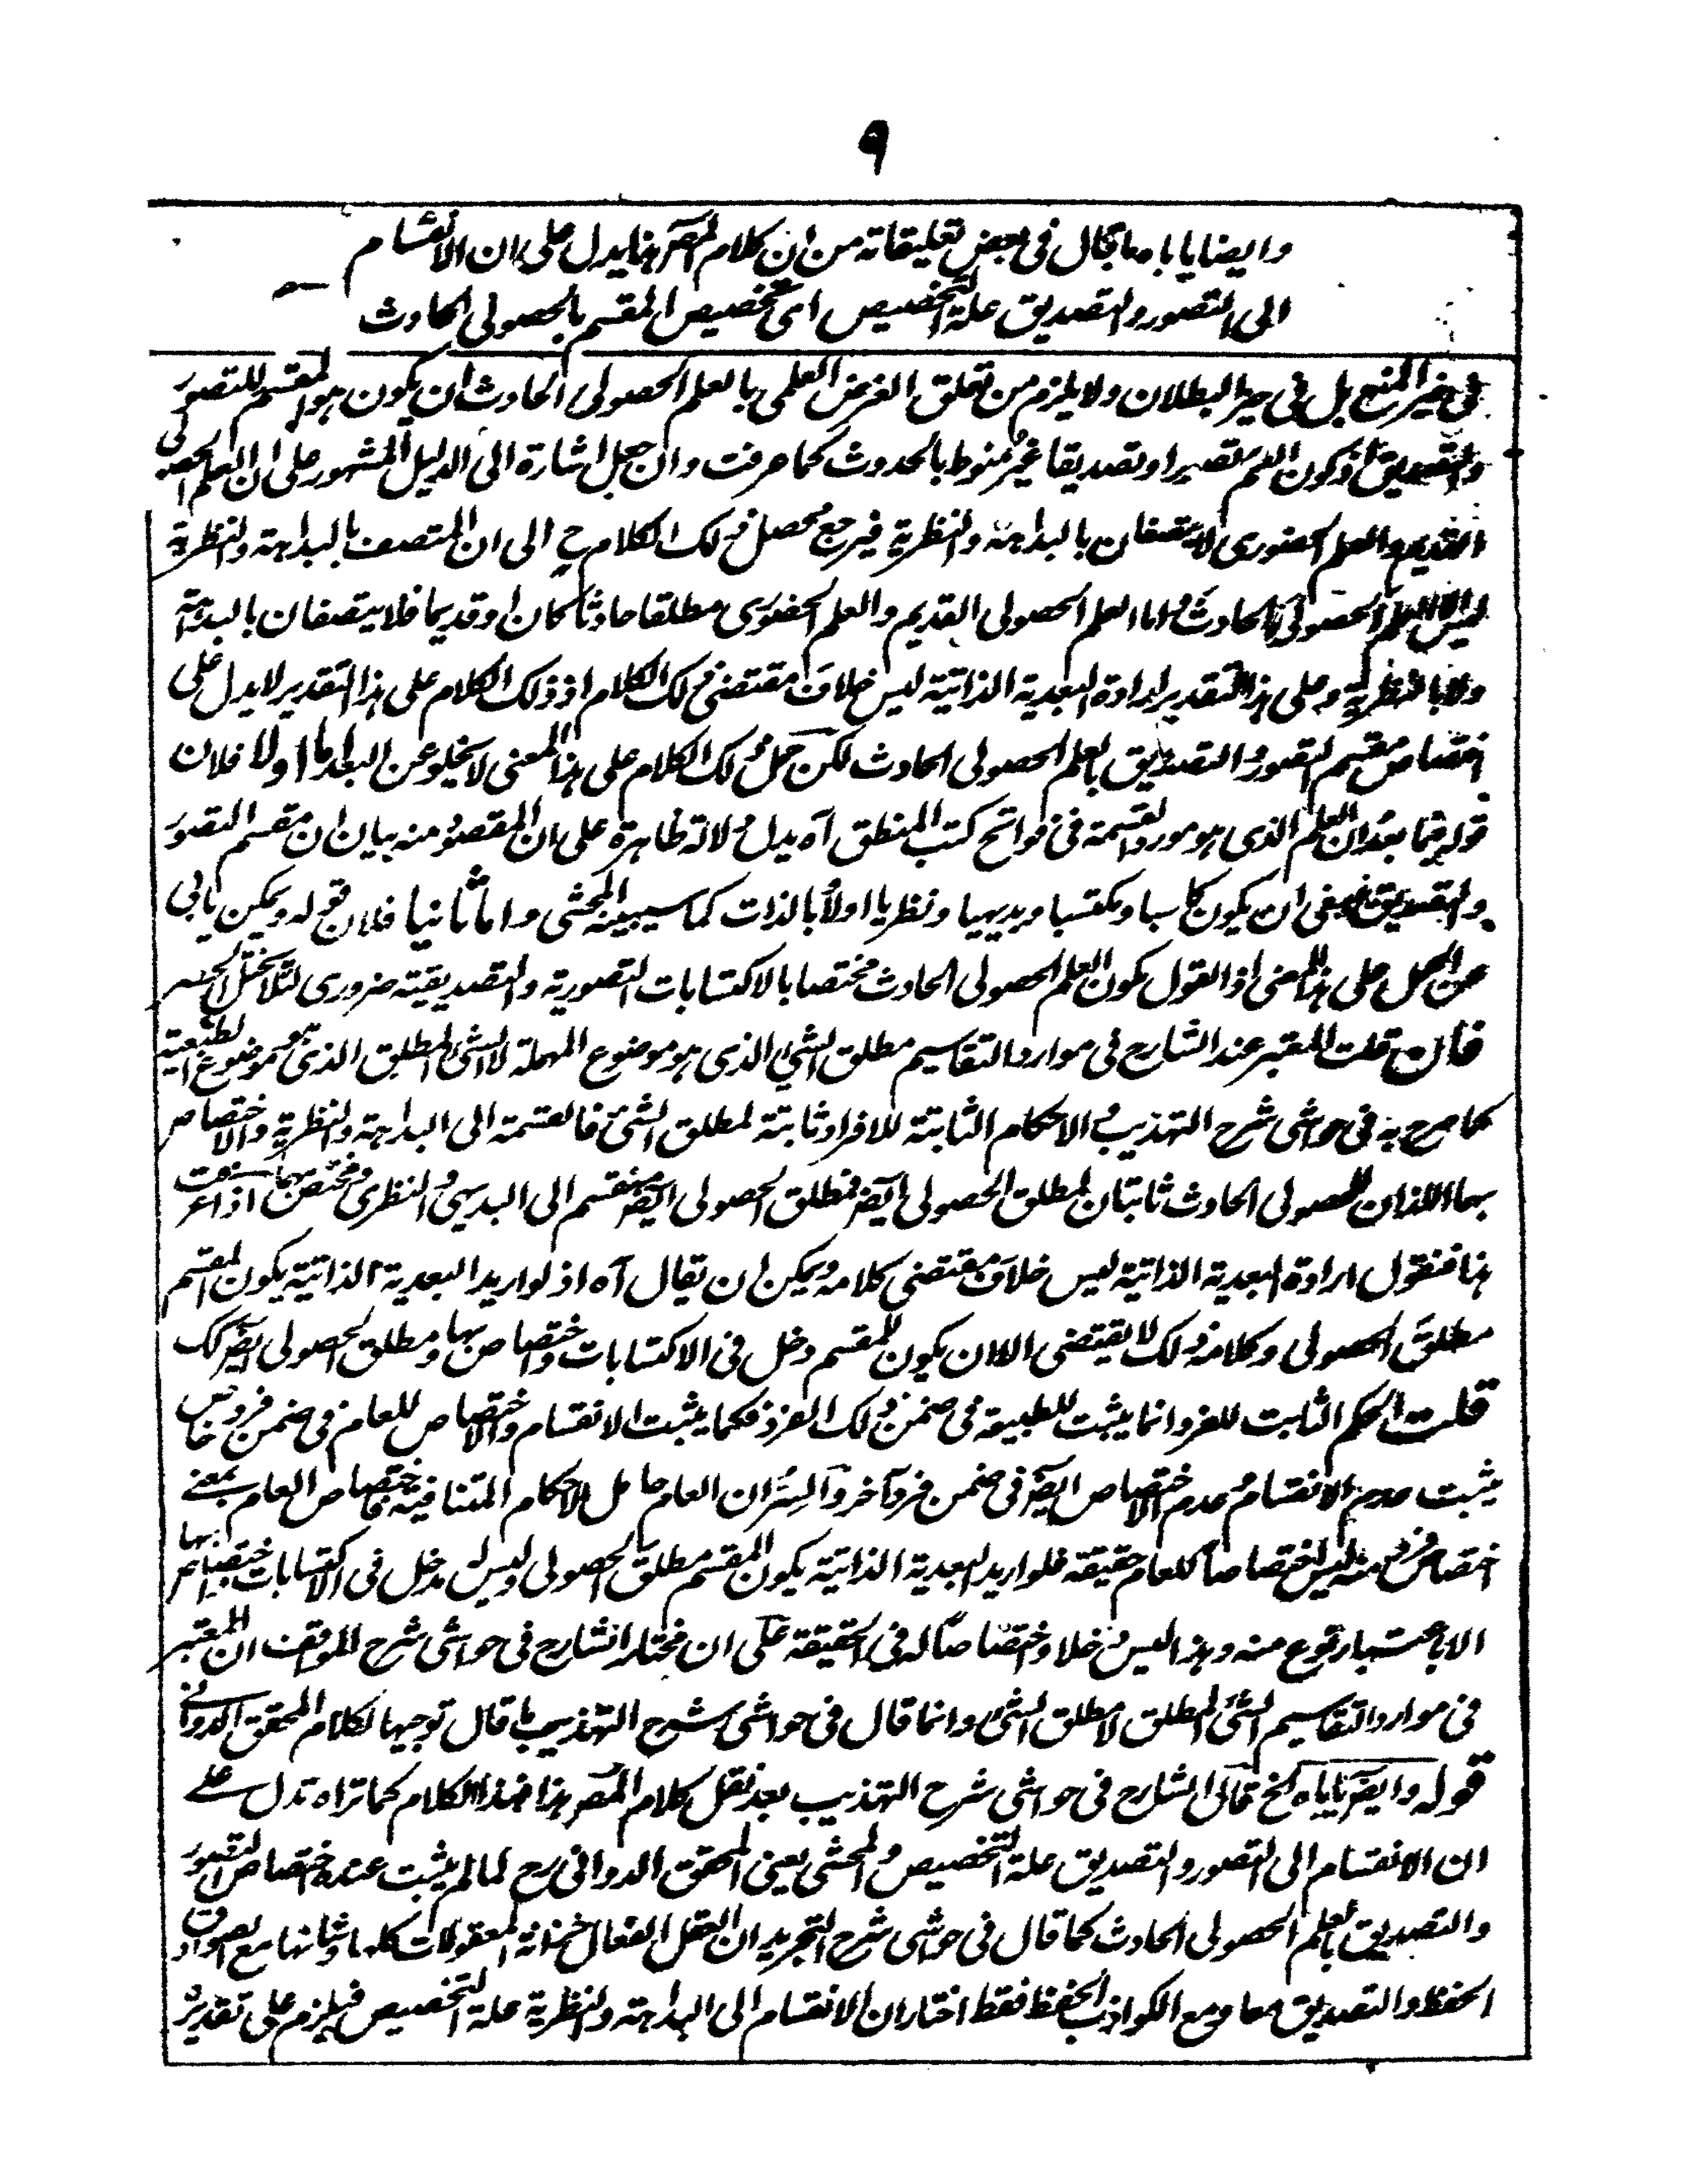 ٩
وايضا ياباه ما قال فى بعض تعليقاته من ان كلام المصر هذا يدل على ان الانقسام
الى التصور والتصديق علة التخصيص اى تخصيص المقسم بالحصولى الحادث
فى حيز المنع بل فى حيز البطلان ولا يلزم من تعلق الغرض العلمى بالعلم الحصولى الحادث ان يكون هو المقسم للتصور
والتصديق اذ كون العلم تصورا وتصديقا غير منوط بالحدوث كما عرفت وان جعل اشارة الى الدليل المشهور على ان العلم الحصولى
القديم والعلم الحضورى لا يتصفان بالبداهة والنظرية فيرجع محصل ذلك الكلام ح الى ان المتصف بالبداهة والنظرية
ليس الا العلم الحصولى الحادث واما العلم الحصولى القديم والعلم الحضورى مطلقا حادثا كان او قديما فلا يتصفان بالبداهة
ولا بالنظرية وعلى هذا التقدير ارادة البعدية الذاتية ليس خلاف مقتضى ذلك الكلام اذ ذلك الكلام على هذا التقدير لا يدل على
اختصاص مقسم التصور والتصديق بالعلم الحصولى الحادث لكن حمل ذلك الكلام على هذا المعنى لا يخلو عن البعد اما اولا فلان
قوله فيما بعد ان العلم الذى هو مورد القسمة فى فواتح كتب المنطق آه يدل دلالة ظاهرة على ان المقصود منه بيان ان مقسم التصور
والتصديق ينبغى ان يكون كاسبا ومكتسبا وبديهيا ونظريا اولا وبالذات كما سيبينه المحشى واما ثانيا فلان قوله ويمكن يابى
عن الحمل على هذا المعنى اذ القول بكون العلم الحصولى الحادث مختصا بالاكتسابات التصورية والتصديقية ضرورى لئلا يختل الحصر
فان قلت المعتبر عند الشارح فى موارد التقاسيم مطلق الشئ الذى هو موضوع المهملة لا الشئ المطلق الذى هو موضوع الطبعية
كما صرح به فى حواشى شرح التهذيب والاحكام الثابتة للافراد ثابتة لمطلق الشئ فالقسمة الى البداهة والنظرية والاختصاص
بها اللذان للحصولى الحادث ثابتان لمطلق الحصولى ايضر فمطلق الحصولى ايضر منقسم الى البديهى والنظرى ومختص بهما اذا عرفت
هذا فنقول ارادة البعدية الذاتية ليس خلاف مقتضى كلامه ويمكن ان يقال آه اذ لو اريد البعدية الذاتية يكون المقسم
مطلق الحصولى وكلامه ذلك لا يقتضى الا ان يكون للمقسم دخل فى الاكتسابات واختصاص بها ومطلق الحصولى ايضر كك
قلت الحكم الثابت للفرد انما يثبت للطبيعة فى ضمن ذلك الفرد فكما يثبت الانقسام والاختصاص للعام فى ضمن فرد خاص
يثبت عدم الانقسام وعدم الاختصاص ايضر فى ضمن فرد آخر والسر ان العام حامل للاحكام المتنافية فاختصاص العام بمعنى
اختصاص فرد منه ليس اختصاصا للعام حقيقة فلو اريد البعدية الذاتية يكون المقسم مطلق الحصولى وليس له مدخل فى الاكتسابات واختصاص بها
الا باعتبار نوع منه وهذا ليس دخلا واختصاصا له فى الحقيقة على ان مختار الشارح فى حواشى شرح المواقف ان المعتبر
فى موارد التقاسيم الشئ المطلق لا مطلق الشئ وانما قال فى حواشى شرح التهذيب ما قال توجيها لكلام المحقق الدوانى
قوله وايضر ياباه الخ قال الشارح فى حواشى شرح التهذيب بعد نقل كلام المصر هذا فهذا الكلام كما تراه تدل على
ان الانقسام الى التصور والتصديق علة التخصيص والمحشى يعنى المحقق الدوانى رح لما لم يثبت عنده اختصاص التصور
والتصديق بالعلم الحصولى الحادث كما قال فى حواشى شرح التجريد ان العقل الفعال خزانة المعقولات كلها وشانها مع الصوادق
الحفظ والتصديق معا ومع الكواذب الحفظ فقط اختار ان الانقسام الى البداهة والنظرية علة التخصيص فيلزم على تقدير